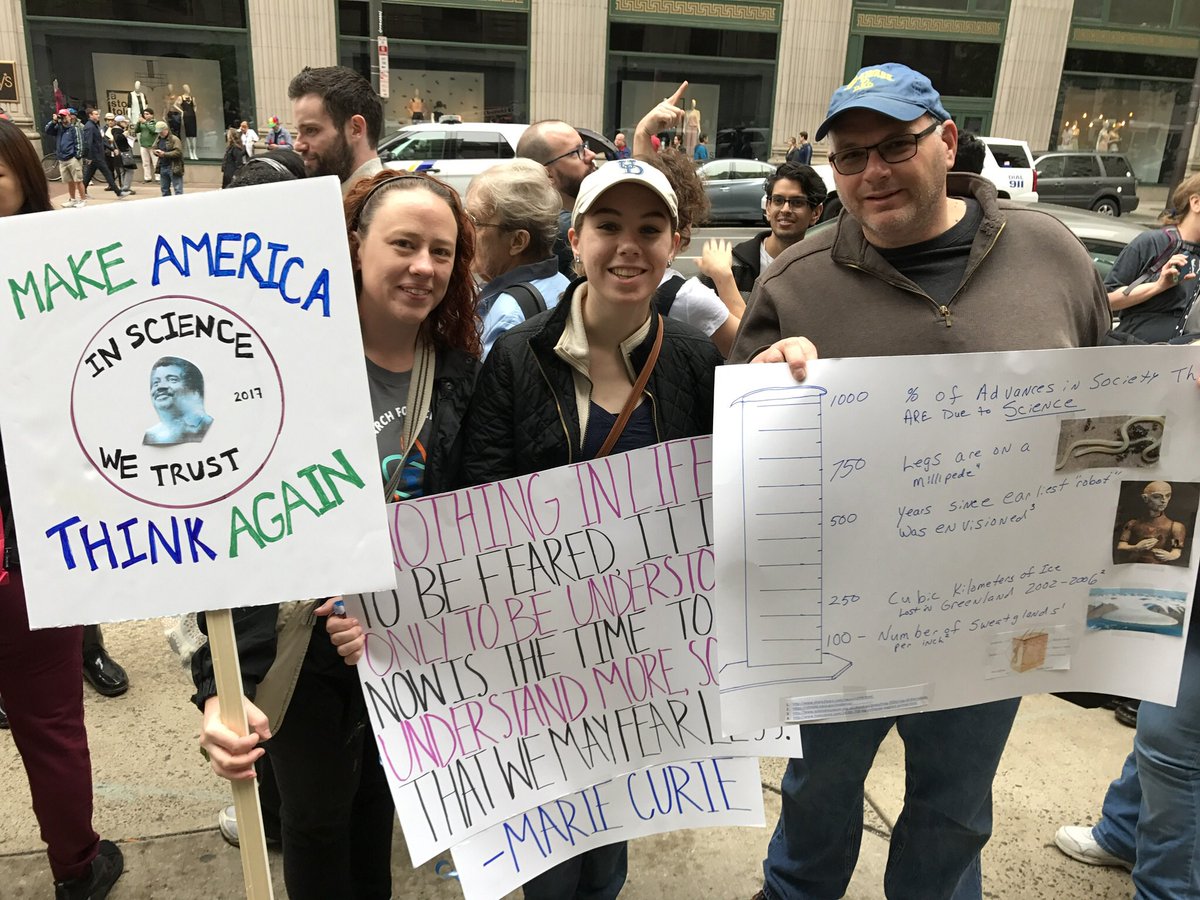 MAKE AMERICA
IN SCIENCE
2017
WE TRUST
THINK AGAIN
NOTHING IN LIFE
TO BE FEARED, IT I
ONLY TO BE UNDERSTO
NOW IS THE TIME TO
UNDERSTAND MORE, SO
THAT WE MAY FEAR L
ESS.
-MARIE CURIE
1000 % of Advances in Society Th
ARE Due to Science
750 Legs are on a
millipede4
500 Years since earliest "robot"
was envisioned3
250 Cubic Kilometers of Ice
Lost in Greenland 2002-20062
100 - Number of Sweatglands1
per inch2
UD
911